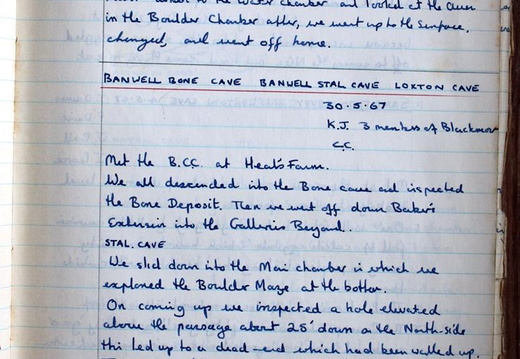 to the Water Chamber and looked at the
in the Boulder Chamber after, we went up to the surface,
changed, and went off home.
BANWELL BONE CAVE BANWELL STAL CAVE LOXTON CAVE
30.5.67
K.J. 3 members of Blackmore
C.C.
Met the B.C.C. at Heal's Farm.
We all descended into the Bone cave and inspected
the Bone Deposit. Then we went off down Baker's
Extension into the Galleries Beyond.
STAL. CAVE
We slid down into the Main chamber in which we
explored the Boulder Maze at the bottom.
On coming up we inspected a hole elevated
above the passage about 25' down on the North-side
this led up to a dead-end which had been walled up.